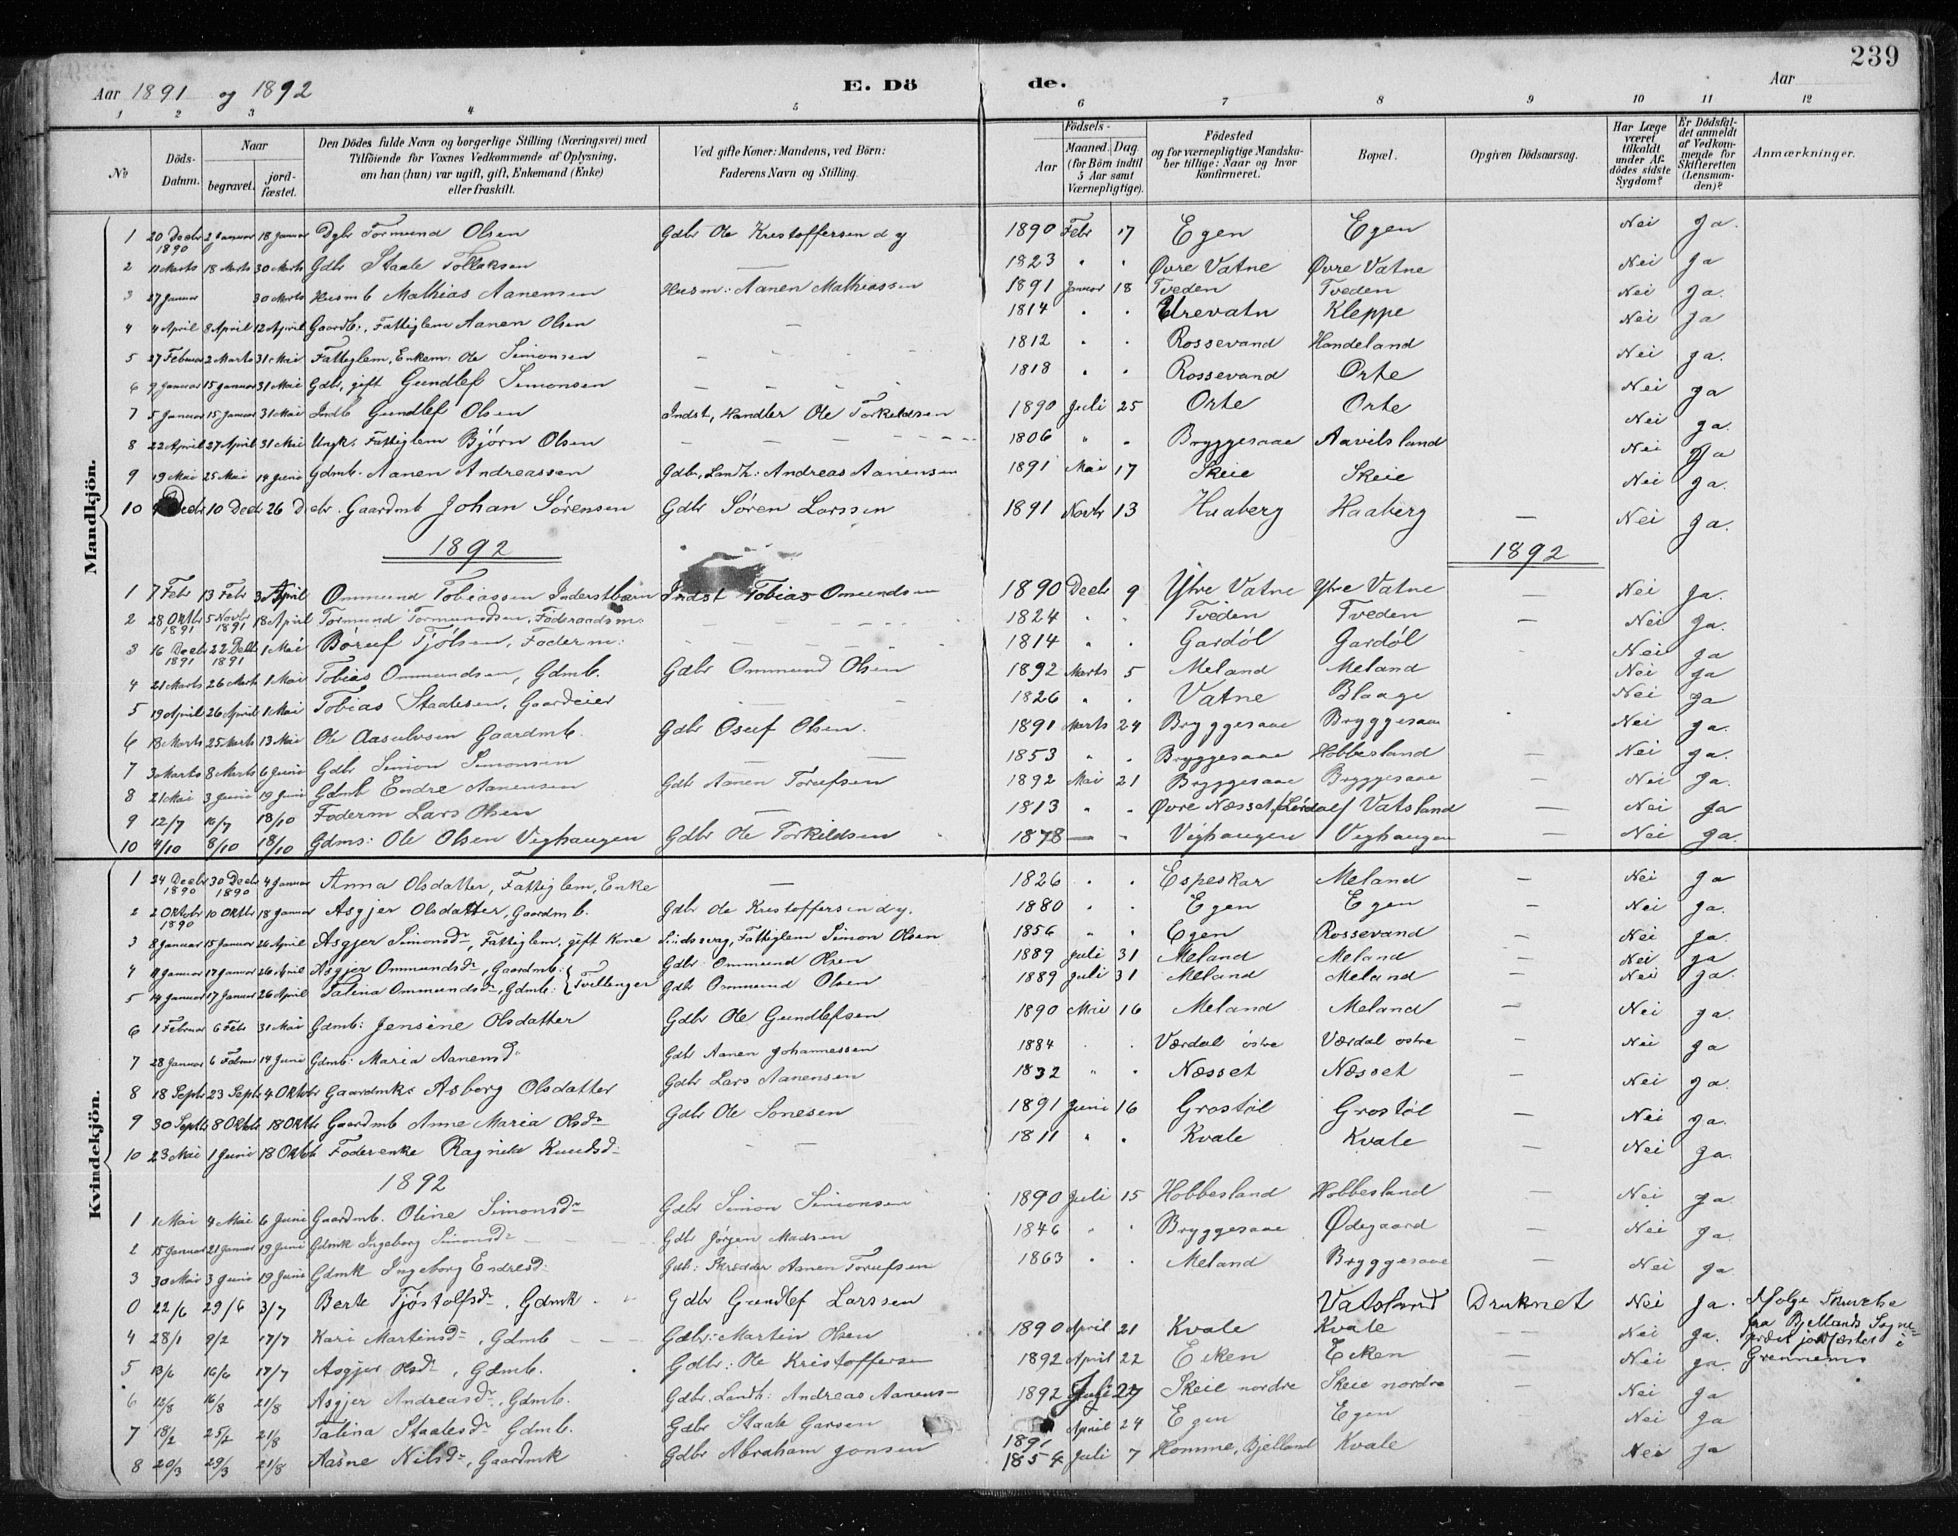 239
Aar 1891 og 1892 E. Dö de. Aar
1 2 3 4 5 6 7 8 9 10 11 12
No Döds-Datum. Naar begravet. jord-fæstet. Den Dödes fulde Navn og borgerlige Stilling (Næringsvei) med Tilföiende for Voxnes Vedkommende af Oplysning, om han (hun) var ugift, gift, Enkemand (Enke) eller fraskilt. Ved gifte Koner: Mandens, ved Börn: Faderens Navn og Stilling. Födsels- Aar Maaned. Dag. (for Börn indtil 5 Aar samt Værnepligtige). Födested og for værnepligtige Mandska-ber tillige: Naar og hvor konfirmeret. Bopæl. Opgiven Dödsaarsag. Har Læge været tilkaldt under Af-dödes sidste Sygdom? Er Dödsfal-det anmeldt af Vedkom-mende for Skifteretten (Lensman-den)? Anmærkninger.
Mandkjön.
1 20 Decbr 1890 2 Januar 18 Januar Dgbr Tormund Olsen Gdbr Ole Kristoffersen d y 1890 Febr 17 Egen Egen Nei Ja.
2 11 Marts 18 Marts 30 Marts Gdbr Staale Tollaksen — 1823 " " Øvre Vatne Øvre Vatne Nei Ja
3 27 Januar 30 Marts Husmb Mathias Aanensen Husm: Aanen Mathiassen 1891 Januar 18 Tveden Tveden Nei Ja.
4 4 April 8 April 12 April Gaardb:, Fattiglem Aanen Olsen — 1814 " " Urevatn Kleppe Nei Ja
5 27 Februar 2 Marts 31 Mai Fattiglem, Enkem: Ole Simonsen — 1812 " " Rossevand Handeland Nei Ja.
6 9 Januar 15 Januar 31 Mai Gdbr, gift Gundlef Simonsen — 1818 " " Rossevand Orte Nei Ja
7 5 Januar 15 Januar 31 Mai Indb Gundlef Olsen Indst, Handler Ole Torkeldsen 1890 Juli 25 Orte Orte Nei Ja.
8 22 April 27 April 31 Mai Ungk. Fattiglem Bjørn Olsen — 1806 " " Bryggesaae Aavitsland Nei Ja
9 19 Mai 25 Mai 14 Juni Gdmb. Aanen Andreassen Gdbr, Landh: Andreas Aanensen 1891 Mai 17 Skeie Skeie Nei Ja.
10 Decbr 10 Decbr 26 Decbr. Gaardmb Johan Sørensen Gdbr Søren Larssen 1891 Novbr 13 Haaberg Haaberg — Nei Ja.
1892 1892
1 7 Febr 13 Febr 3 April Ommund Tobiassen Inderstbarn Indst Tobias Omundsen 1890 Decbr 9 Ytre Vatne Ytre Vatne — Nei Ja.
2 28 Oktbr 1891 5 Novbr 1891 18 April Tormund Tormundsen, Föderaadsm. — 1824 " " Tveden Tveden — Nei Ja.
3 16 Decbr 1891 22 Decbr 1891 1 Mai Böruf Tjölsen, Foderm: — 1814 " " Gardöl Gardöl Nei Ja
4 21 Marts 26 Marts 1 Mai Tobias Ommundsen, Gdmb. Gdbr Ommund Olsen 1892 Marts 5 Meland Meland Nei Ja
5 19 April 26 April 1 Mai Tobias Staalesen, Gaardeier — 1826 " " Vatne Blaage Nei Ja
6 18 Marts 25 Marts 13 Mai Ole Aasulvsen Gaardmb. Gdbr Osuf Olsen. 1891 Marts 24 Bryggesaae Bryggesaa Nei Ja.
7 3 Marts 8 Marts 6 Juni Gdbr Simon Simonsen — 1853 " " Bryggesaae Hobbesland — Nei Ja.
8 21 Mai 3 Juni 19 Juni Gdmb Endre Aanensen Gdb Aanen Torufsen 1892 Mai 21 Bryggesaae Bryggesaae — Nei Ja.
9 12/7 16/7 18/10 Foderm Lars Olsen — 1813 " " Øvre Næsset Vatsland — Nei Ja
10 4/10 8/10 18/10 Gdms: Ole Olsen Veghaugen Gdbr Ole Torkildsen 1878 — " Veghaugen Veghaugen — Nei Ja.
Kvindekjön.
1 24 Decbr 1890 30 Decbr 1890 4 Januar Anna Olsdatter, Fattiglem, Enke — 1826 " " Espeskar Meland — Nei Ja
2 2 Oktobr 1890 10 Oktbr 18 Januar Asgjer Olsdatter, Gaardmb. Gdbr Ole Kristoffersen d y. 1880 " " Egen Egen — Nei Ja.
3 8 Januar 15 Januar 26 April Asgjer Simonsdr, Fattiglem, gift Kone Sindssvag, Fattiglem Simon Olsen 1856 " " Egen Rossevand — Nei Ja.
4 11 Januar 17 Januar 26 April Asgjer Ommundsdr, Gaardmb: Gdbr: Ommund Olsen 1889 Juli 31 Meland Meland — Nei Ja
5 14 Januar 17 Januar 26 April Talina Ommundsdr, Gdmb: { Tvillinger Gdb Ommund Olsen 1889 Juli 31 Meland Meland — Nei Ja.
6 1 Februar 6 Febr 31 Mai Gdmb: Jensine Olsdatter Gdbr Ole Gundlefsen 1890 Mai 16 Meland Meland — Nei Ja.
7 28 Januar 6 Februar 14 Juni Gdmb: Maria Aanensdr Gdb Aanen Johannessen 1884 " " Værdal östre Værdal östre — Nei Ja
8 18 Septbr 23 Septbr 4 Oktobr Gaardmk: Asborg Olsdatter Gdbr Lars Aanensen 1832 " " Næsset Næsset — Nei Ja.
9 30 Septbr 8 Oktbr 18 Oktb Gaardmb Anne Maria Olsdr Gdbr Ole Sonesen 1891 Juni 16 Grostöl Grostöl — Nei Ja.
10 23 Mai 1 Juni 18 Oktob Foderenke Ragnild Knudsdr — 1811 " " Kvale Kvale — Nei Ja.
1892
1 1 Mai 4 Mai 6 Juni Gaardmb. Oline Simonsdr Gdbr Simon Simonsen 1890 Juli 15 Hobbesland Hobbesland — Nei Ja.
2 15 Januar 21 Januar 19 Juni Gdmk Ingeborg Simonsdr Gdb Jørgen Madsen 1846 " " Bryggesaae Ødegaard — Nei Ja.
3 30 Mai 3 Juni 19 Juni Gdmk Ingeborg Endresd: Gdb: Skrædder Aanen Torufsen 1863 " Meland Bryggesaae — Nei Ja
0 22/6 29/6 3/7 Berte Tjöstolfsdr, Gdmk Gdbr Gundlef Larssen Vatsland Druknet Nei Ja. Ifølge Skrivelse
4 28/1 9/2 17/7 Kari Martinsdr, Gdmb Gdbr: Martin Olsen 1890 April 21 Kvale Kvale — Nei Ja. fra Bjellands Sogne-
5 13/6 16/6 17/7 Asgjer Olsdr, Gdmb. Gdbr: Ole Kristoffersen 1892 April 22 Eiken Eiken — Nei Ja. præst jordfæstet i Grennem
6 12/8 16/8 21/8 Asgjer Andreasdr, Gdmb. Gdbr. Landh: Andreas Aanens- 1892 Juli 27 Skeie nordre Skeie nordre — Nei Ja
7 18/2 25/2 21/8 Talina Staalesdr Gdmb. Gdbr Staale Garsen 1891 April 24 Egen Egen Nei Ja
8 20/3 29/3 21/8 Aasne Nilsdr, Gaardmk Gdbr Abraham Jonsen 1854 Juli 7 Homme, Bjelland Kvale Nei Ja